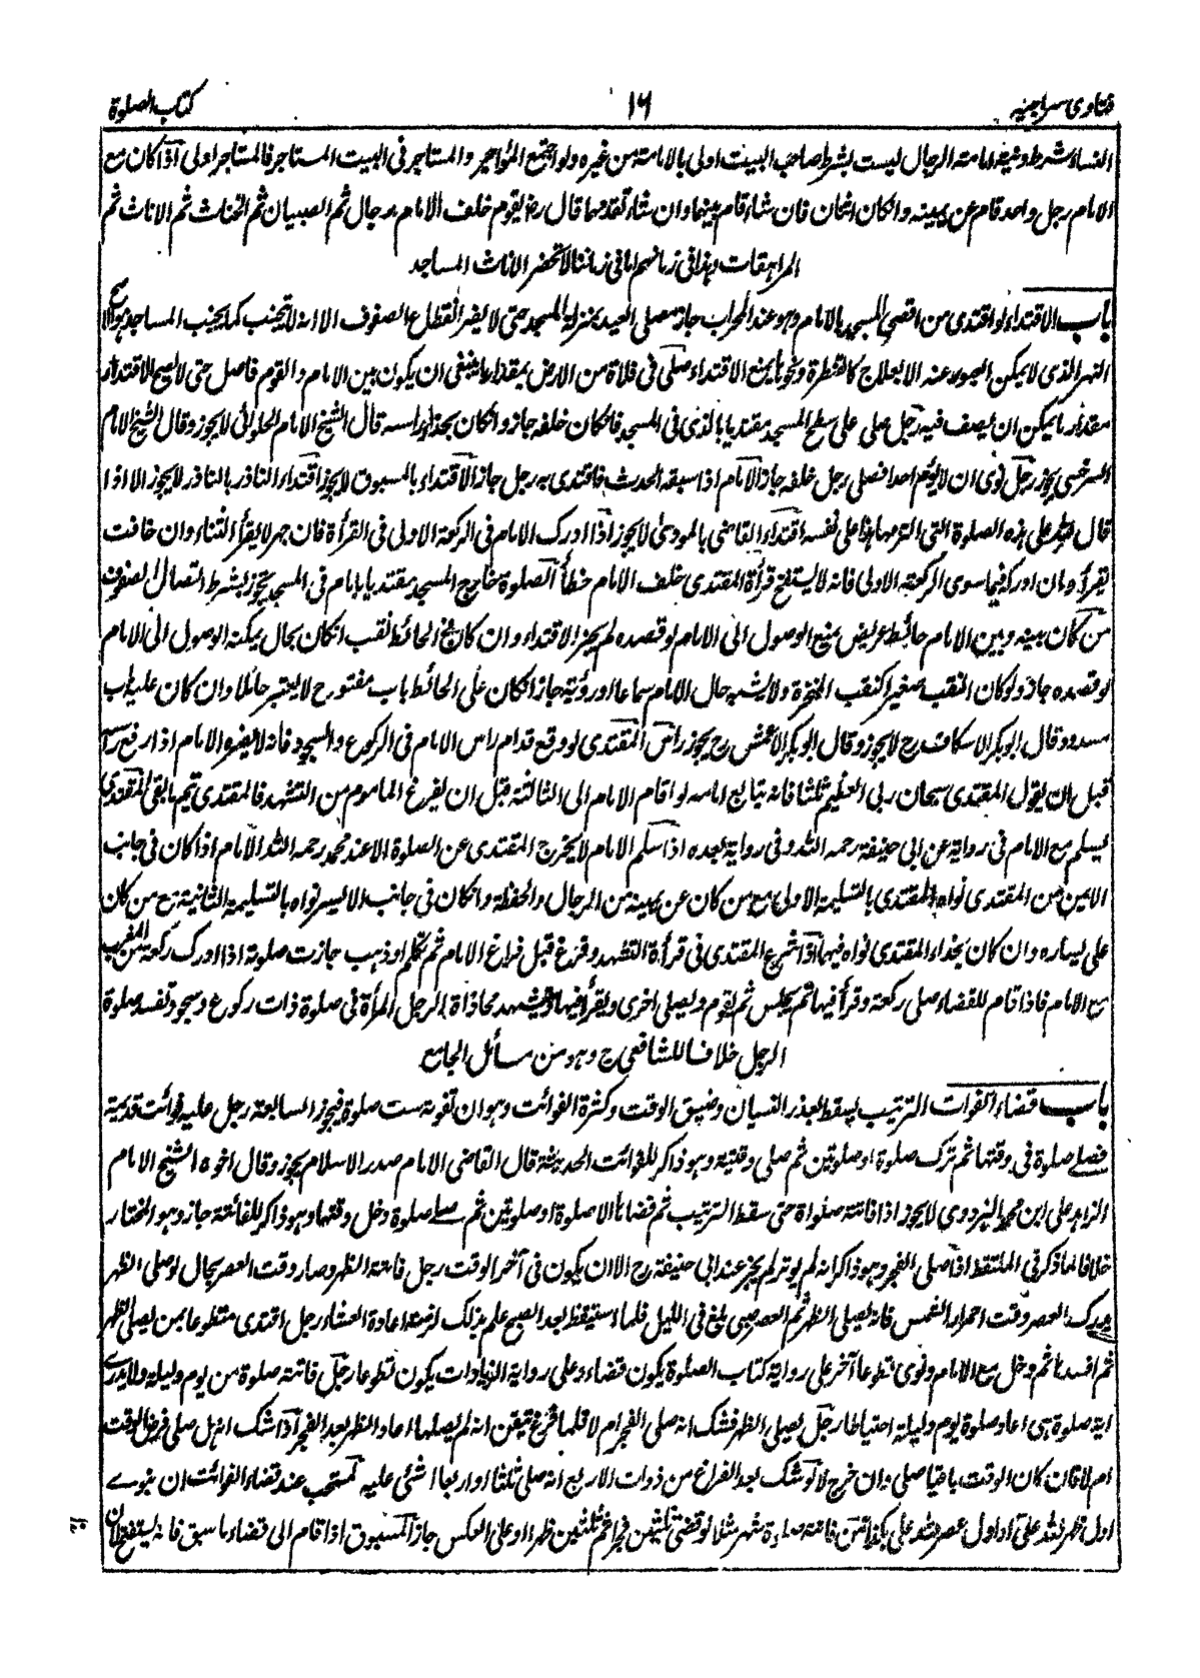 فتاوی سراجیہ
۱۶
کتاب الصلوة
النساء شرط ونیة امامة الرجال لیست بشرط صاحب البیت اولی بالامامة من غیره ولو اجتمع المؤاجر والمستاجر فی البیت المستاجر فالمستاجر اولی اذا کان مع
الامام رجل واحد قام عن یمینه وان کان اثنان فان شاء قام بینهما وان شاء تقدمهما قال رض یقوم خلف الامام الرجال ثم الصبیان ثم الخناث ثم الاناث ثم
المراهقات وهذا فی زمانهم اما فی زماننا لا تحضر الاناث المساجد
باب الاقتداء لو اقتدی من اقصی المسجد بالامام وهو عند المحراب جاز مصلی العید بمنزلة المسجد حتی لا یضر انقطاع الصفوف الا انه لا یجنب کما یجنب المساجد هو الصحیح
النهر الذی لا یمکن العبور عنه الا بعلاج کالقنطرة ونحوها یمنع الاقتداء صلی فی فلاة من الارض بمقدار ما ینبغی ان یکون بین الامام والقوم فاصل حتی لا یصح الاقتداء
مقدار ما یمکن ان یصف فیه رجل صلی علی سطح المسجد مقتدیا بالذی فی المسجد فان کان خلفه جاز وان کان بحذاء راسه قال الشیخ الامام الحلوائی لا یجوز وقال الشیخ الامام
السرخسی یجوز رجل نوی ان لا یؤم احدا فصلی رجل خلفه جاز الامام اذا سبقه الحدث فاقتدی به رجل جاز الاقتداء بالمسبوق لا یجوز اقتداء الناذر بالناذر لا یجوز الا اذا
قال لله علی هذه الصلوة التی التزمها هذا علی نفسه اقتداء القاضی بالمودی لا یجوز اذا ادرک الامام فی الرکعة الاولی فی القرأة فان جهر لا یقرأ الثناء وان خافت
یقرأ وان ادرکه فیما سوی الرکعة الاولی فانه لا یستفتح قرأة المقتدی خلف الامام خطأ الصلوة خارج المسجد مقتدیا بامام فی المسجد یجوز بشرط اتصال الصفوف
من کان بینه وبین الامام حائط عریض یمنع الوصول الی الامام لو قصده لم یجز الاقتداء وان کان فی الحائط نقب ان کان بحال یمکنه الوصول الی الامام
لو قصده جاز ولو کان النقب صغیرا کنقب المنخرة ولا یشتبه حال الامام سماعا او رؤیة جاز ان کان علی الحائط باب مفتوح لا یعتبر حائلا وان کان علیه باب
مسدود قال ابو بکر الاسکاف رح لا یجوز وقال ابو بکر الاعمش رح یجوز راس المقتدی لو وقع قدام راس الامام فی الرکوع والسجود فانه لا یضره الامام اذا رفع رأسه
قبل ان یقول المقتدی سبحان ربی العظیم ثلثا فانه یتابع امامه لو اقام الامام الی الثالثة قبل ان یفرغ الماموم من التشهد فالمقتدی یتم ما بقی المقتدی
یسلم مع الامام فی روایة عن ابی حنیفة رحمه الله وفی روایة بعده اذا سلم الامام لا یخرج المقتدی عن الصلوة الا عند محمد رحمه الله الامام اذا کان فی جانب
الایمن من المقتدی نواه المقتدی بالتسلیمة الاولی مع من کان عن یمینه من الرجال والحفظة وان کان فی جانب الایسر نواه بالتسلیمة الثانیة مع من کان
علی یساره وان کان بحذاء المقتدی نواه فیهما اذا شرع المقتدی فی قرأة التشهد وفرغ قبل فراغ الامام ثم تکلم او ذهب جازت صلوته اذا ادرک رکعة من المغرب
مع الامام فاذا قام للقضاء صلی رکعة وقرأ فیها ثم یجلس ثم یقوم ویصلی اخری ویقرأ فیها ویتشهد محاذاة الرجل المرأة فی صلوة ذات رکوع وسجود تفسد صلوة
الرجل خلافا للشافعی رح وهو من مسائل الجامع
باب قضاء الفوات الترتیب یسقط بعذر النسیان وضیق الوقت وکثرة الفوائت وهو ان تفوته ست صلوة فیجوز السابعة رجل علیه فوائت قدیمة
فصلی صلوة فی وقتها ثم ترک صلوة او صلوتین ثم صلی وقتیة وهو ذاکر للفوائت الحدیثة قال القاضی الامام صدر الاسلام یجوز وقال اخوه الشیخ الامام
الزاهد علی ابن محمد البزدوی لا یجوز اذا فاتته صلواة حتی سقط الترتیب ثم قضاها الا صلوة او صلوتین ثم صلی صلوة دخل وقتها وهو ذاکر للفائتة جاز وهو المختار
خلافا لما ذکر فی الملتقط اذا صلی الفجر وهو ذاکر انه لم یوتر لم یجز عند ابی حنیفة رح الا ان یکون فی آخر الوقت رجل فاتته الظهر وصار وقت العصر بحال لو صلی الظهر
یدرک العصر وقت احمرار الشمس فانه یصلی الظهر ثم العصر صبی بلغ فی اللیل فلما استیقظ بعد الصبح علم بذلک لزمته اعادة العشاء رجل اقتدی متطوعا بمن یصلی الظهر
ثم افسدها ثم دخل مع الامام ونوی تطوعا آخر علی روایة کتاب الصلوة یکون قضاء وعلی روایة الزیادات یکون تطوعا رجل فاتته صلوة من یوم ولیلة ولا یدری
ایة صلوة هی اعاد صلوة یوم ولیلة احتیاطا رجل یصلی الظهر فشک انه صلی الفجر ام لا فلما فرغ تیقن انه لم یصلها اعاد الظهر بعد الفجر اذا شک انه هل صلی فرض الوقت
ام لا فان کان الوقت باقیا صلی وان خرج لا لو شک بعد الفراغ من ذوات الاربع انه صلی ثلثا او اربعا لا شئ علیه یستحب عند قضاء الفوائت ان ینوی
اول ظهر لله علی او اول عصر لله علی هکذا من فاتته صلوة شهر مثلا لو قضی ثلثین فجرا ثم ثلثین ظهرا او علی العکس جاز المسبوق اذا قام الی قضاء ما سبق فانه یستفتح